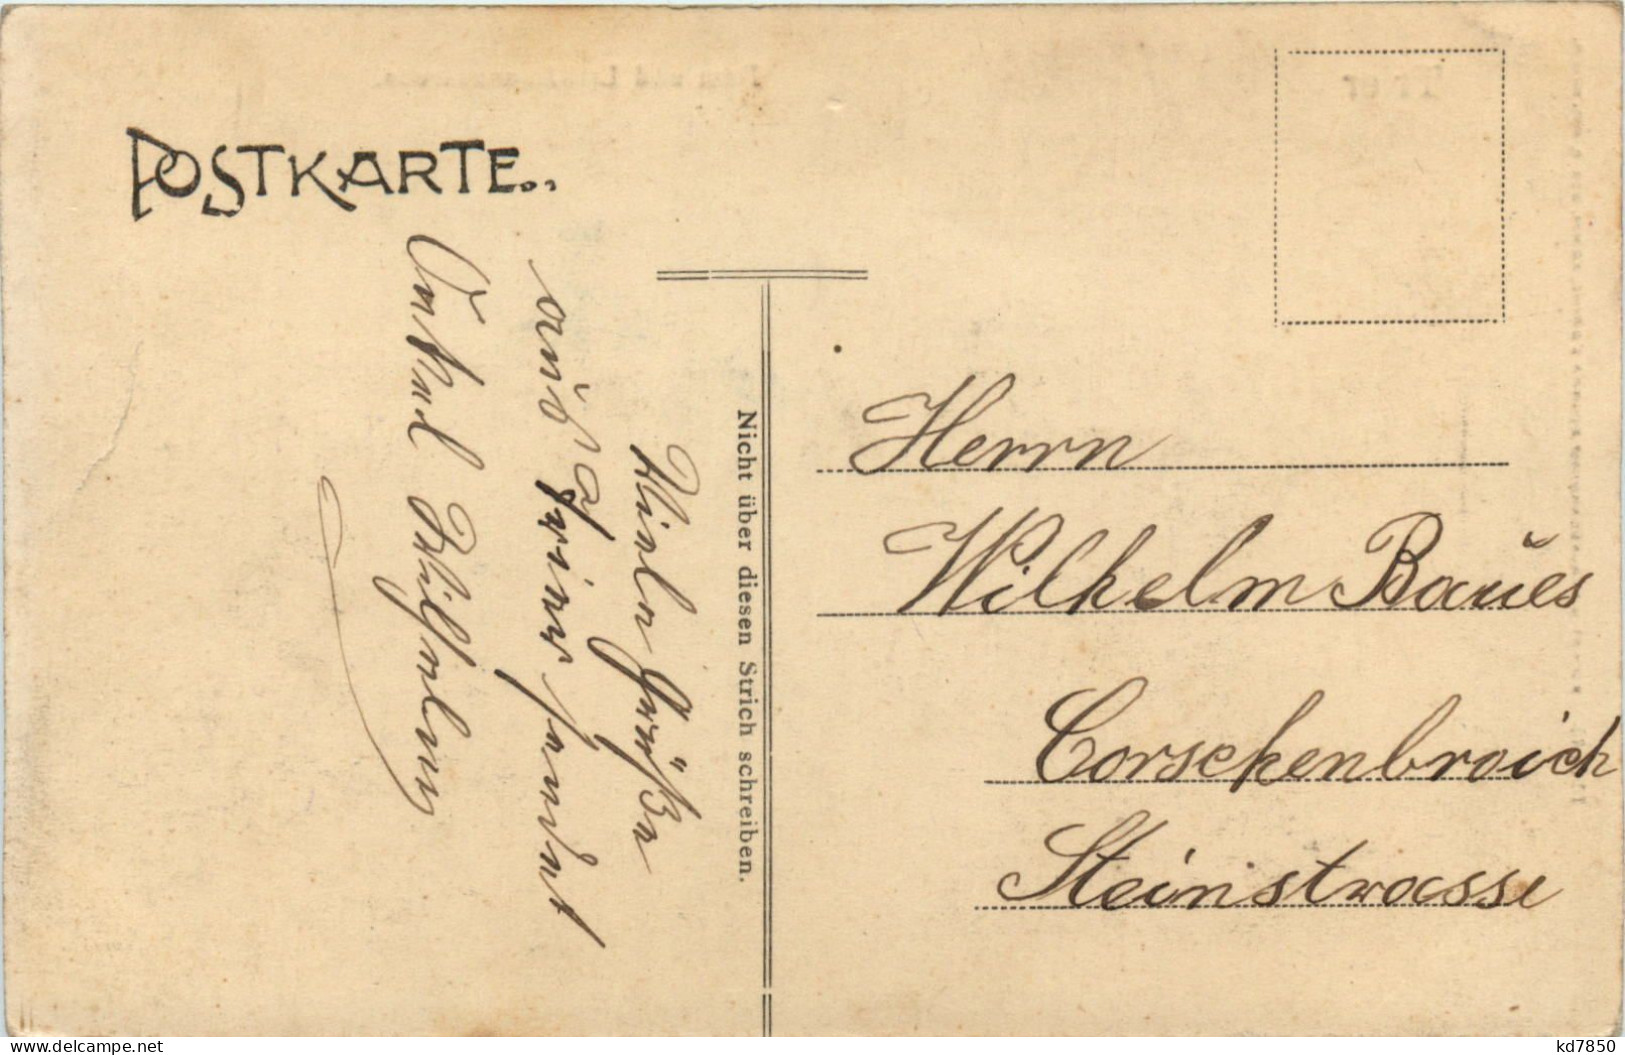 POSTKARTE..
Viele Grüße
aus Trier sendet
Onkel Wilhelm
Nicht über diesen Strich schreiben.
Herrn
Wilhelm Baues
Corschenbroich
Steinstrasse
kd7850